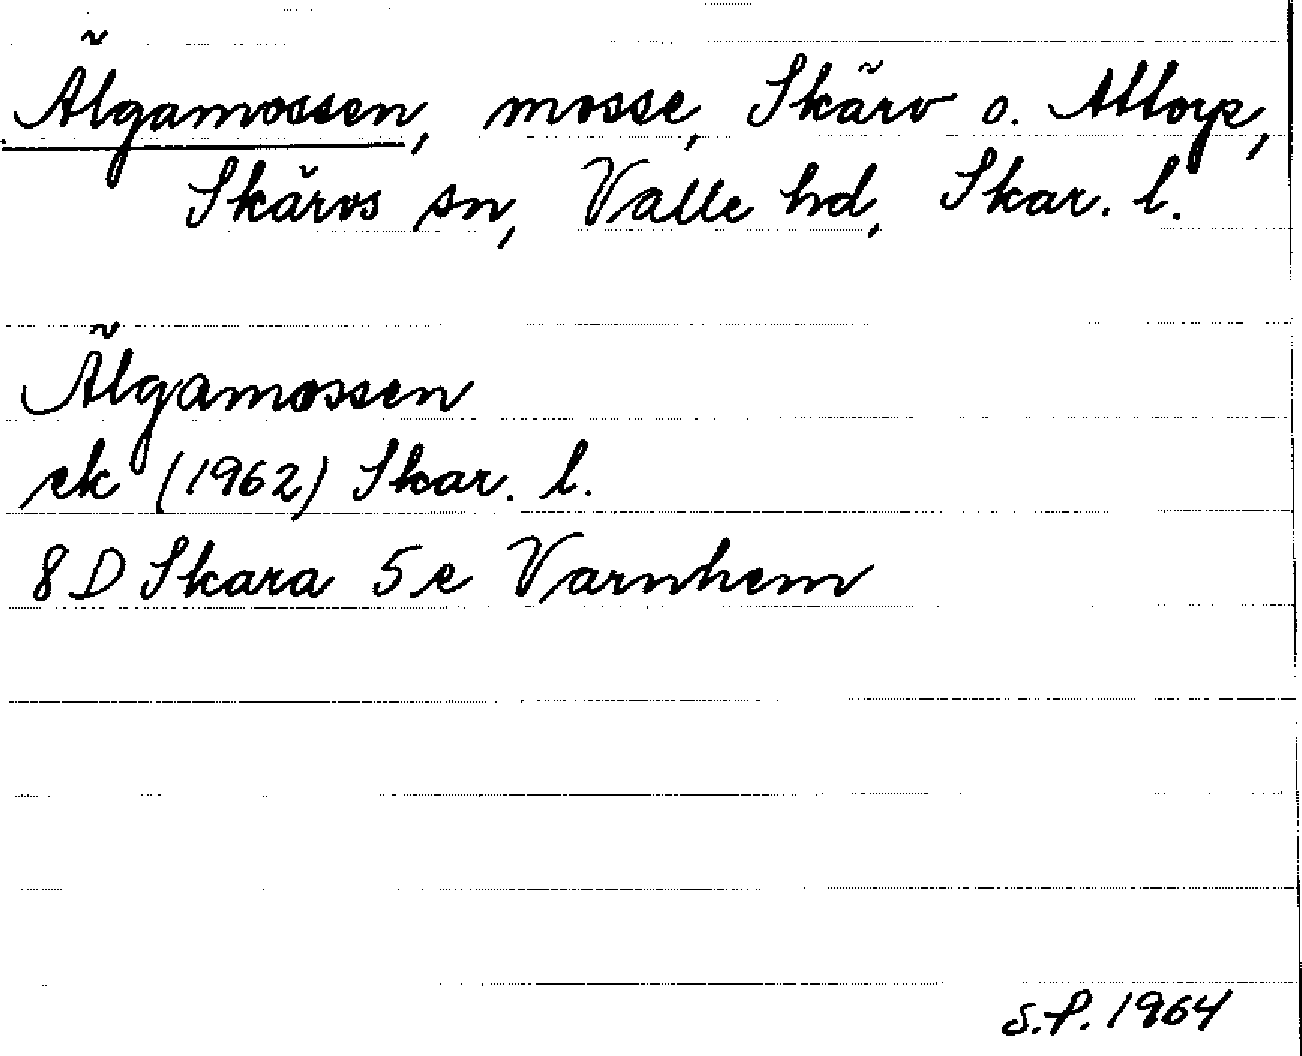 Älgamossen, mosse, Skärv o. Attorp,
Skärvs sn, Valle hd, Skar. l.
Älgamossen
ek (1962) Skar. l.
8 D Skara 5 e Varnhem
S.F. 1964